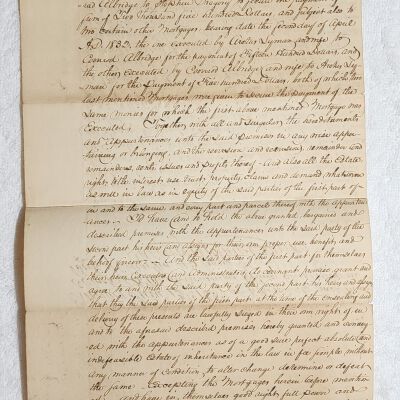 said Aldridge to Stephen Gregory to secure the payment of
sum of Two Thousand five Hundred Dollars, and subject also to
two Certain other Mortgages bearing date the second day of April
AD 1832, the one executed by Lyman and wife to
Conrod Aldridge for the payment of Fifteen Hundred Dollars, and
the other executed by Conrod Aldridge and wife to
man for the payment of Five hundred Dollars, both of which two
last mentioned Mortgages were given to secure the payment of the
same monies for which the first above mentioned Mortgage was
executed; Together with all and singular the hereditaments
and appurtenances unto the said premises in any wise apper-
taining or belonging, and the reversion and reversions, remainder and
remainders, rents issues and profits thereof And also all the Estate
right, title, interest, use, trust, property, claim and demand whatsoever
as well in law as in equity of the said parties of the first part of
in and to the same and every part and parcel thereof with the appurten
ances — To Have and to hold the above granted, bargained and
described premises with the appurtenances unto the said party of the
second part his heirs and assigns for their own proper use benefit, and
behoof forever — And the said parties of the first part for themselves
their heirs Executors and Administrators, do covenant promise, grant and
agree to and with the said party of the second part his heirs and assigns
that they the said parties of the first part at the time of the ensealing and
delivery of these presents are lawfully seized in their own right of in
and to the aforesaid described premises hereby granted and convey-
ed with the appurtenances as of a good sure perfect absolute and
indefeasible Estate of inheritance in the law in fee simple without
any manner of Condition, to alter change determine or defeat
the same. Excepting the Mortgages herein before mentio-
good right full power and